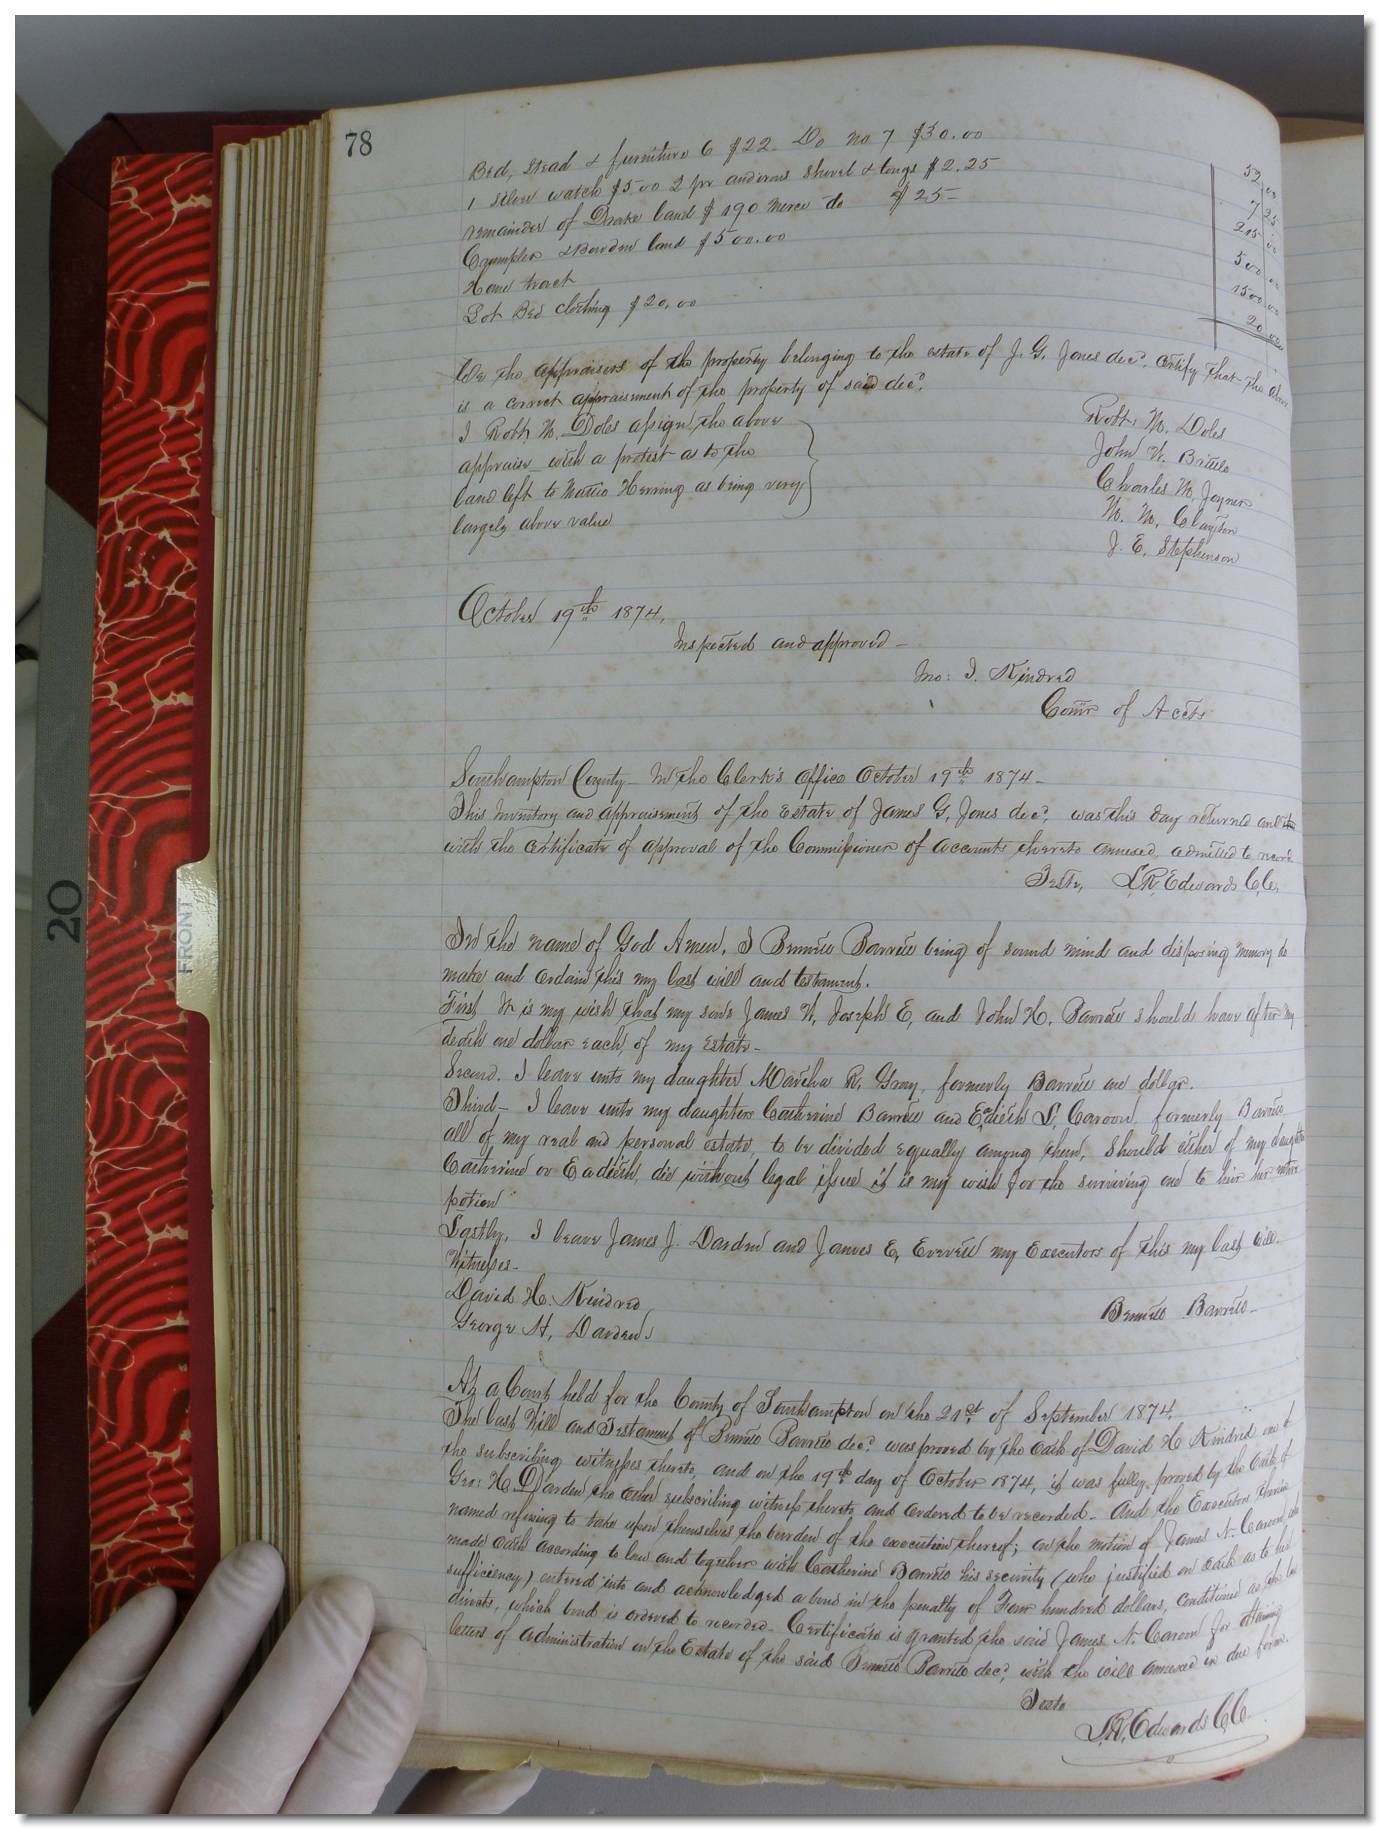 78
Bed, Stead & furniture 6 $22. Do no 7 $30.00 52 00
1 Silver watch $5.00 2 pr andirons Shovel & tongs $2.25 7 25
remainder of Drake land $190 Merce do $25- 215 00
Crumpler & Bowden land $500.00 500 00
Home tract 1500 00
Lot Bed clothing $20.00 20 00
We the appraisers of the property belonging to the estate of J. G. Jones decd. certify that the above
is a correct appraisement of the property of said decd.
I Robt. W. Doles assign the above
appraise with a protest as to the
land left to Mattie Herring as being very
largely above value
Robt. W. Doles
John W. Brittle
Charles W. Joyner
W. W. Clayton
J. E. Stephenson
October 19th 1874,
Inspected and approved -
Jno: J. Kindred
Comr of Accts
Southampton County - In the Clerk's Office October 19th 1874 -
This Inventory and appraisement of the Estate of James G. Jones decd. was this day returned and
with the certificate of approval of the Commissioner of accounts thereto annexed, admitted to record
Teste, L. R. Edwards C. C.
In the name of God Amen, I Bennett Barrett being of sound mind and disposing memory do
make and ordain this my last will and testament.
First It is my wish that my sons James W, Joseph E, and John H. Barrett should have after my
death one dollar each, of my estate -
Second. I leave unto my daughter Martha R. Gray, formerly Barrett one dollar.
Third - I leave unto my daughters Catherine Barrett and Eadieth L. Caroon, formerly Barrett,
all of my real and personal estate, to be divided equally among them, Should either of my daughters
Catherine or Eadieth, die without legal issue it is my wish for the surviving one to heir her entire
potion
Lastly, I leave James J. Darden and James E, Everett my Executors of this my last will.
Witnesses -
David H. Kindred
George H. Darden
Bennett Barrett -
At a Court held for the County of Southampton on the 21st of September 1874.
The last Will and Testament of Bennett Barrett decd. was proved by the oath of David H Kindred one of
the subscribing witnesses thereto, and on the 19th day of October 1874, it was fully proved by the oath of
Geo: H. Darden the other subscribing witness thereto, and ordered to be recorded - And the Executors therein
named refusing to take upon themselves the burden of the execution thereof; on the motion of James N. Caroon, who
made oath according to law and together with Catherine Barrett his security (who justified on oath as to her
sufficiency) entered into and acknowledged a bond in the penalty of Four hundred dollars, conditioned as the law
directs, which bond is ordered to recorded - Certificate is granted the said James N. Caroon for obtaining
letters of administration on the Estate of the said Bennett Barrett decd, with the will annexed in due form.
Teste
L. R. Edwards C. C.
FRONT
20